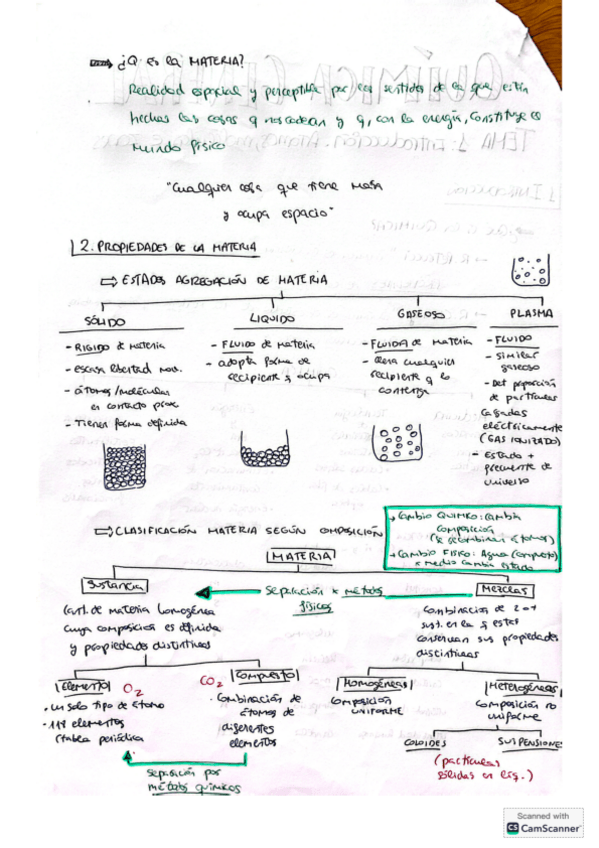 ¿Q. ES LA MATERIA?
Realidad espacial y perceptible por los sentidos de la que están
hechas las cosas q nos rodean y q, con la energía, constituye el
mundo físico
"Cualquier cosa que tiene masa
y ocupa espacio"
2. PROPIEDADES DE LA MATERIA
⇨ ESTADOS AGREGACIÓN DE MATERIA
SÓLIDO
- RIGIDO de materia
- escasa libertad mov.
- átomos/moléculas
en contacto prox
- Tienen forma definida
LIQUIDO
- FLUIDO de materia
- adopta forma de
recipiente q ocupa
GASEOSO
- FLUIDA de materia
- llena cualquier
recipiente q lo
contenga
PLASMA
- FLUIDO
- similar
gaseoso
- Det proporción
de partículas
cargadas
eléctricamente
(GAS IONIZADO)
- Estado +
frecuente de
universo
⇨ CLASIFICACIÓN MATERIA SEGÚN COMPOSICIÓN
→ Cambio QUÍMICO: cambia
composición
→ Cambio FISICO: Agua
cambia estado
MATERIA
Sustancia
Cant. de materia homogénea
cuya composición es definida
y propiedades distintivas
Separación x métodos
físicos
Mezclas
Combinación de 2 o +
sust. en la q estas
conservan sus propiedades
distintivas
Elemento O2
· un solo tipo de átomo
· 118 elementos
(tabla periódica
CO2 Compuesto
· Combinación de
átomos de
diferentes
elementos
Separación por
métodos químicos
Homogéneas
Composición
UNIFORME
Heterogéneas
Composición no
uniforme
COLOIDES
SUSPENSIONES
(partículas
sólidas en líq.)
Scanned with
CS CamScanner